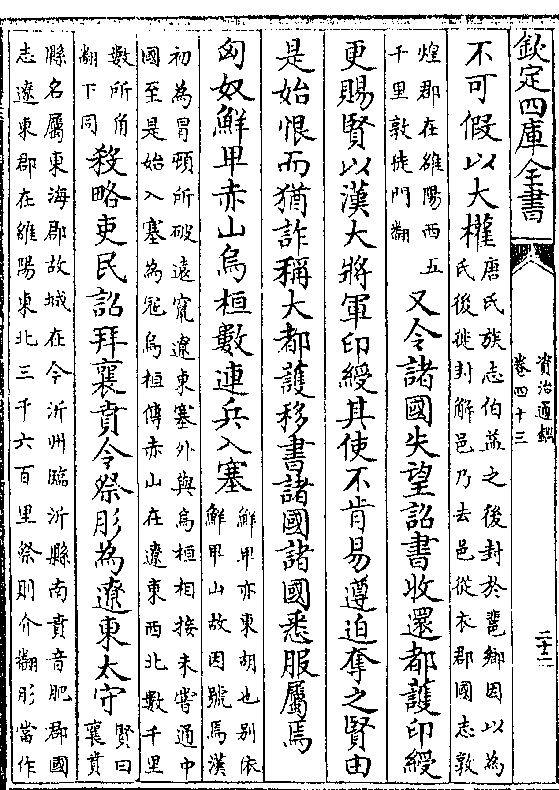 欽定四庫全書
資治通鑑
卷四十三
二十二
不可假以大權
唐氏族志伯益之後封於𨛬鄉因以為
氏後徙封解邑乃去邑從衣郡國志敦
煌郡在維陽西五
千里敦徒門翻
又令諸國失望詔書收還都護印綬
更賜賢以漢大將軍印綬其使不肯易遵迫奪之賢由
是始恨而猶詐稱大都護移書諸國諸國悉服屬焉
匈奴鮮卑赤山烏桓數連兵入塞
鮮卑亦東胡也别依
鮮卑山故因號焉漢
初為冒頓所破逺竄遼東塞外與烏桓相接未嘗通中
國至是始入塞為冦烏桓傳赤山在遼東西北數千里
數所角
翻下同
殺略吏民詔拜襄賁令祭肜為遼東太守
賢曰
襄賁
縣名屬東海郡故城在今沂州臨沂縣南賁音肥郡國
志遼東郡在維陽東北三千六百里祭則介翻肜當作